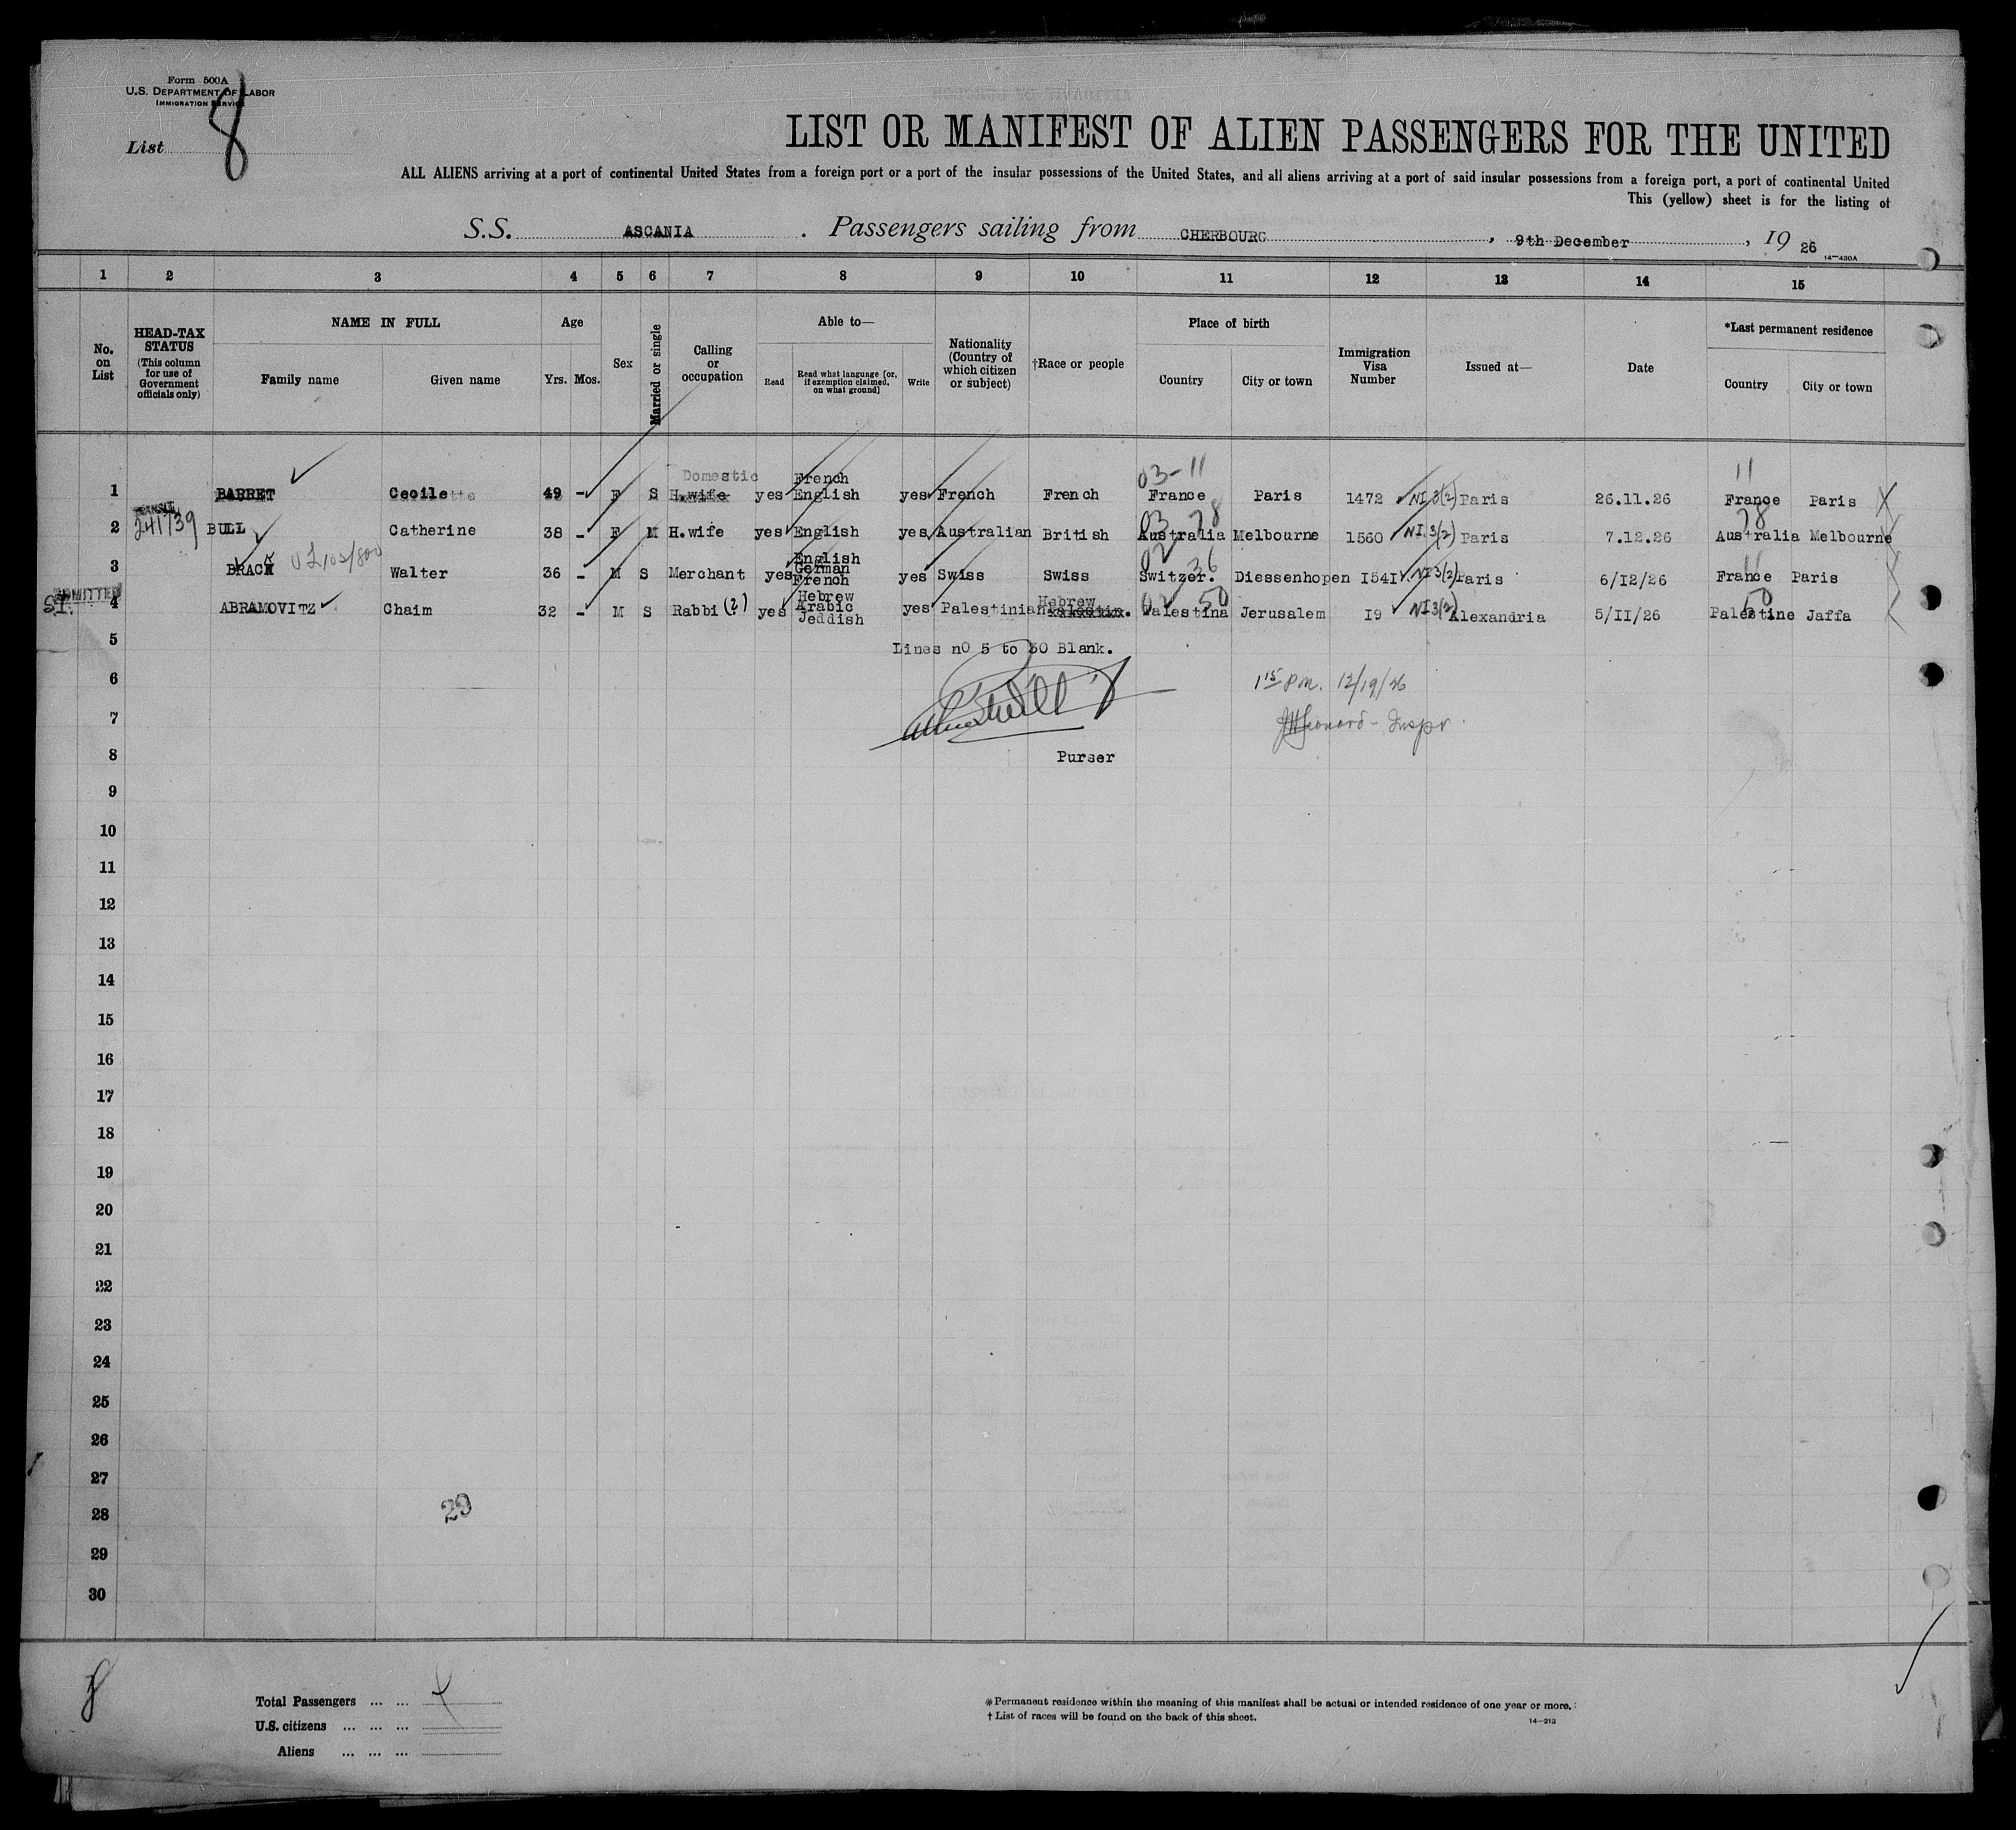 Form 500A
U.S. DEPARTMENT OF LABOR
IMMIGRATION SERVICE
List 8
LIST OR MANIFEST OF ALIEN PASSENGERS FOR THE UNITED
ALL ALIENS arriving at a port of continental United States from a foreign port or a port of the insular possessions of the United States, and all aliens arriving at a port of said insular possessions from a foreign port, a port of continental United
This (yellow) sheet is for the listing of
S.S. ASCANIA . Passengers sailing from CHERBOURG , 9th December , 19 26
14-430A
1 2 3 4 5 6 7 8 9 10 11 12 13 14 15
No. on List
HEAD-TAX STATUS
(This column for use of Government officials only)
NAME IN FULL
Family name Given name
Age
Yrs. Mos.
Sex
Married or single
Calling or occupation
Able to—
Read
Read what language [or, if exemption claimed, on what ground]
Write
Nationality (Country of which citizen or subject)
†Race or people
Place of birth
Country City or town
Immigration Visa Number
Issued at—
Date
*Last permanent residence
Country City or town
03-11 11
Domestic French
1 BARRET Cecilette 49 - F S H.wife yes English yes French French France Paris 1472 NI 3(2) Paris 26.11.26 France Paris
TRANSIT
241739
03 78 78
2 BULL Catherine 38 - F M H.wife yes English yes Australian British Australia Melbourne 1560 NI 3(2) Paris 7.12.26 Australia Melbourne
02 36 11
English
German
3 BRACK Walter 36 - M S Merchant yes French yes Swiss Swiss Switzer. Diessenhopen I54I NI 3(2) Paris 6/I2/26 France Paris
ADMITTED
S.I.
02 50 50
Hebrew Hebrew
4 ABRAMOVITZ Chaim 32 - M S Rabbi (2) yes Arabic yes Palestinian Palestin. Palestina Jerusalem I9 NI 3(2) Alexandria 5/II/26 Palestine Jaffa
Jeddish
5 Lines nO 5 to 30 Blank.
6 1 15 pm. 12/19/26
7 Leonard - Inspr.
8 Purser
9
10
11
12
13
14
15
16
17
18
19
20
21
22
23
24
25
26
27
28 29
29
30
8
Total Passengers ... ... 4
U.S. citizens ... ... ...
Aliens ... ... ...
*Permanent residence within the meaning of this manifest shall be actual or intended residence of one year or more.
†List of races will be found on the back of this sheet.
14-213